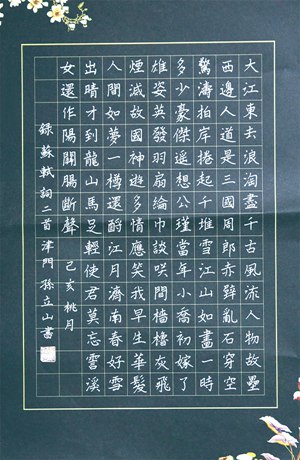 大江東去浪淘盡千古風流人物故壘
西邊人道是三國周郎赤壁亂石穿空
驚濤拍岸捲起千堆雪江山如畫一時
多少豪傑遙想公瑾當年小喬初嫁了
雄姿英發羽扇綸巾談咲間檣櫓灰飛
煙滅故國神遊多情應笑我早生華髮
人間如夢一樽還酹江月濟南春好雪
出晴才到龍山馬足輕使君莫忘霅溪
女還作陽關腸斷聲 己亥桃月
錄蘇軾詞二首津門孫立山書